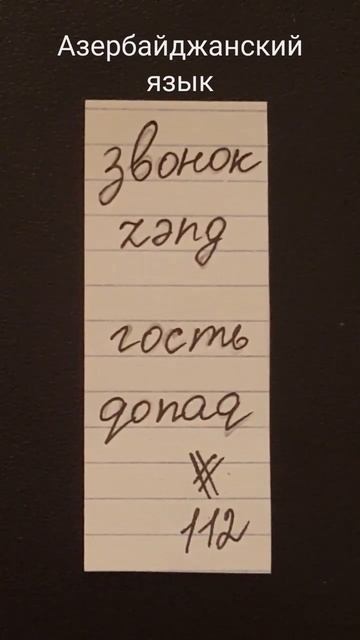 Азербайджанский
язык
звонок
zəng
гость
qonaq
#
112